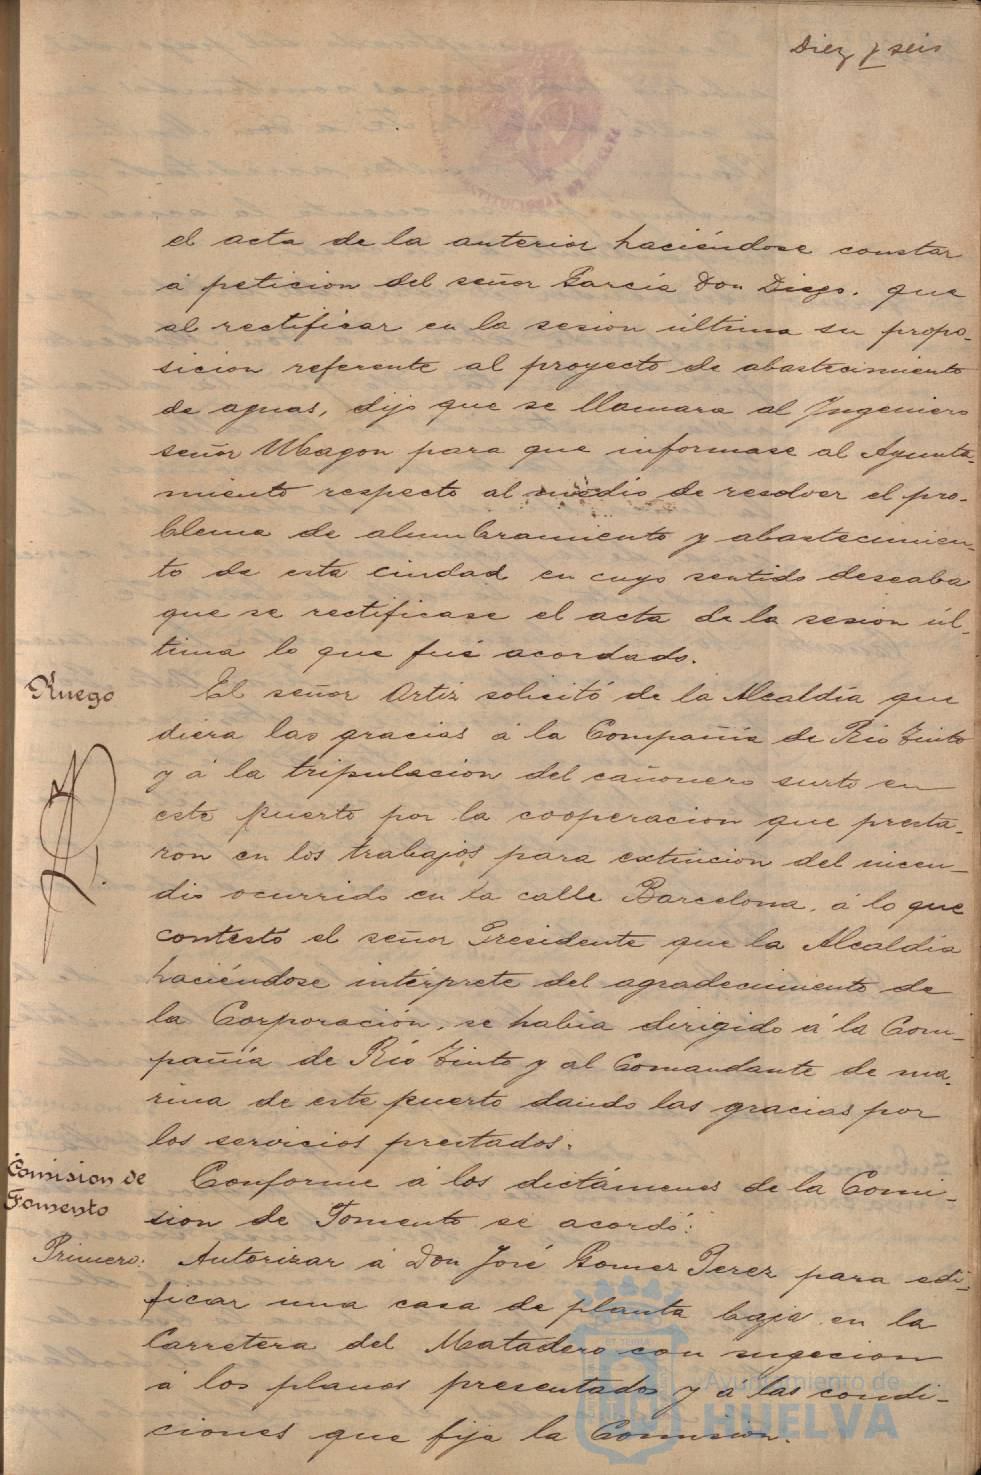 Diez y seis
el acta de la anterior haciéndose constar
á peticion del señor Garcia Don Diego. que
al rectificar en la sesion última su propo-
sicion referente al proyecto de abastecimiento
de aguas, dijo que se llamara al Ingeniero
señor Magon para que informase al Ayunta-
miento respecto al medio de resolver el pro-
blema de alumbramiento y abastecimien-
to de esta ciudad en cuyo sentido deseaba
que se rectificase el acta de la sesion úl-
tima lo que fué acordado.
Ruego
El señor Ortiz solicitó de la Alcaldía que
diera las gracias á la Compañia de Rio Tinto
y á la tripulacion del cañonero surto en
este puerto por la cooperacion que presta-
ron en los trabajos para extincion del incen-
dio ocurrido en la calle Barcelona, á lo que
contestó el señor Presidente que la Alcaldia
haciéndose intérprete del agradecimiento de
la Corporación, se habia dirigido á la Com-
pañía de Río Tinto y al Comandante de ma-
rina de este puerto dando las gracias por
los servicios prestados.
Comision de
Fomento
Conforme á los dictámenes de la Comi-
sion de Fomento se acordó:
Primero:
Autorizar á Don José Gomez Perez para edi-
ficar una casa de planta baja en la
Carretera del Matadero con sugecion
á los planos presentados y á las condi-
ciones que fija la Comision.
Ayuntamiento de
HUELVA